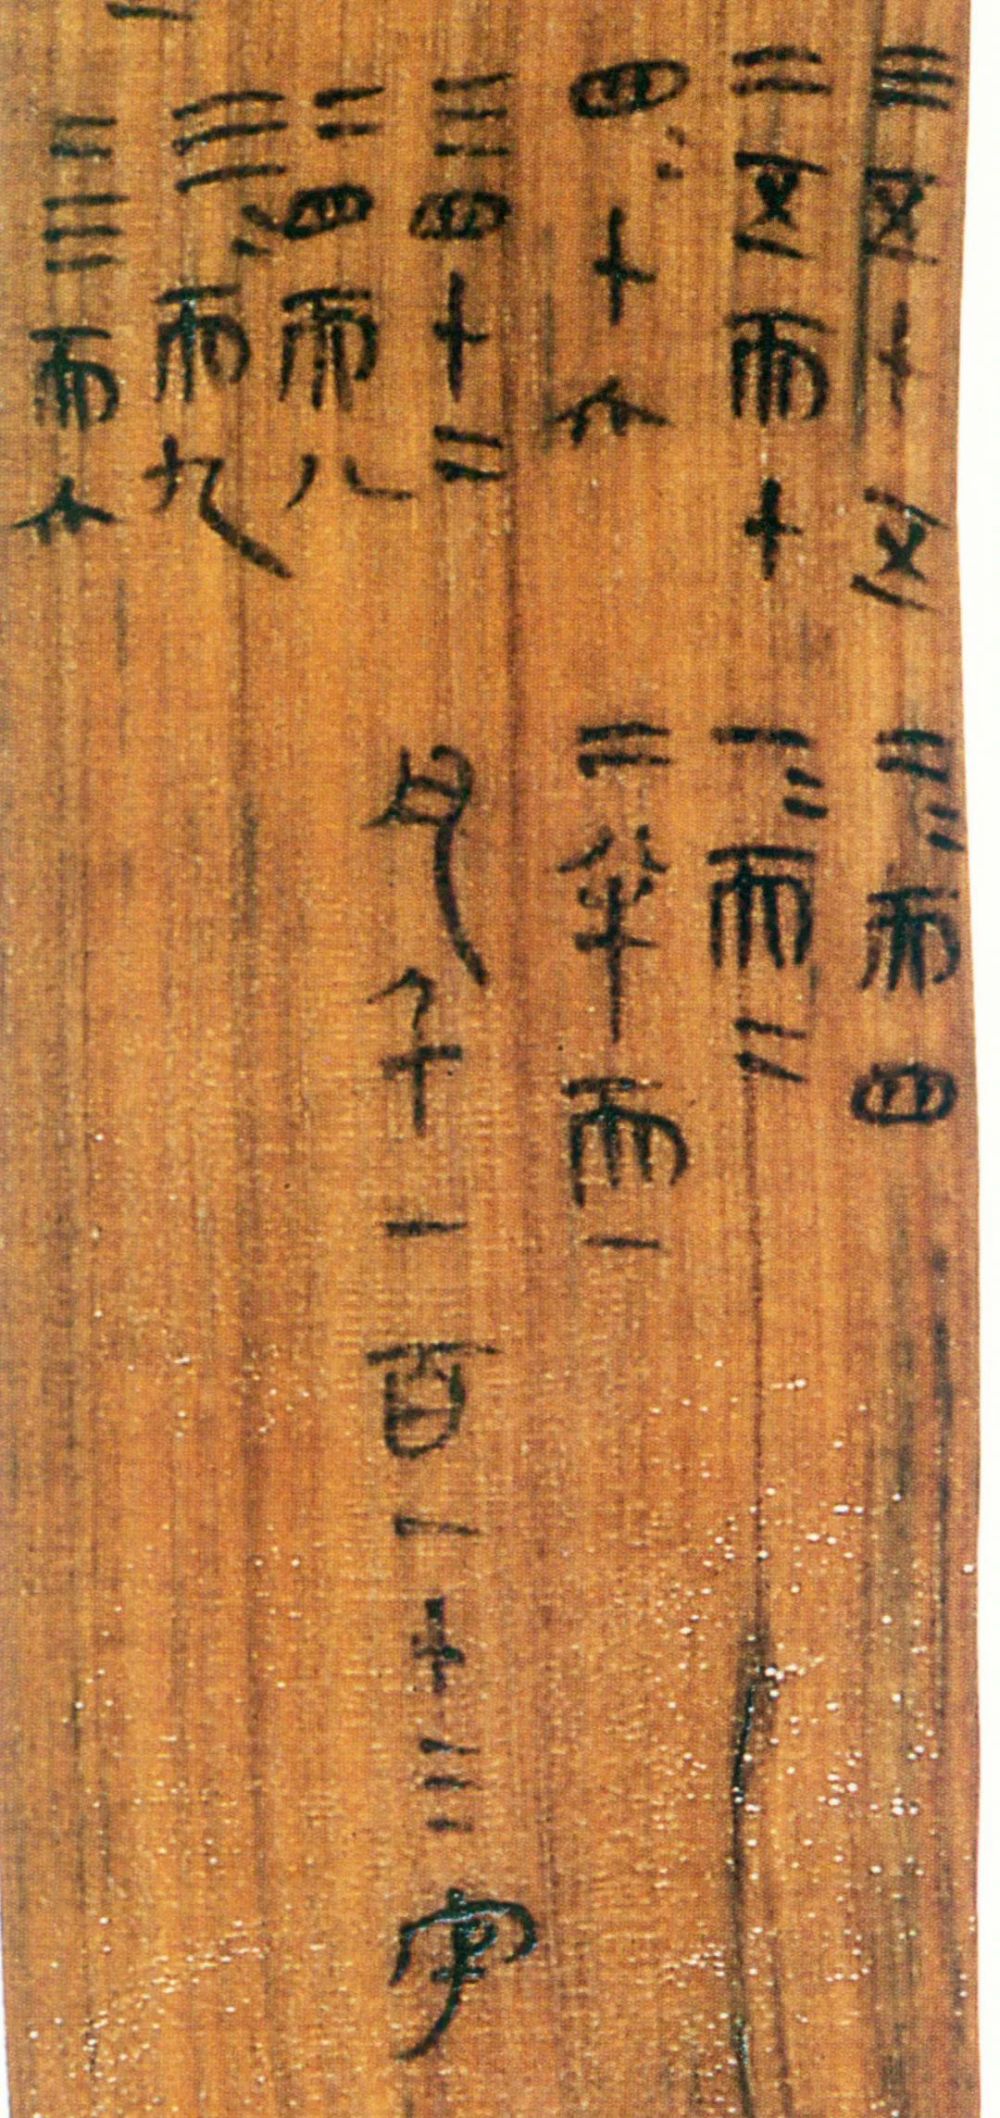 三五十五
二五而十
四〻十六
三四十二
二四而八
三〻而九
二三而六
二〻而四
一〻而二
二半而一
凡千一百一十三字